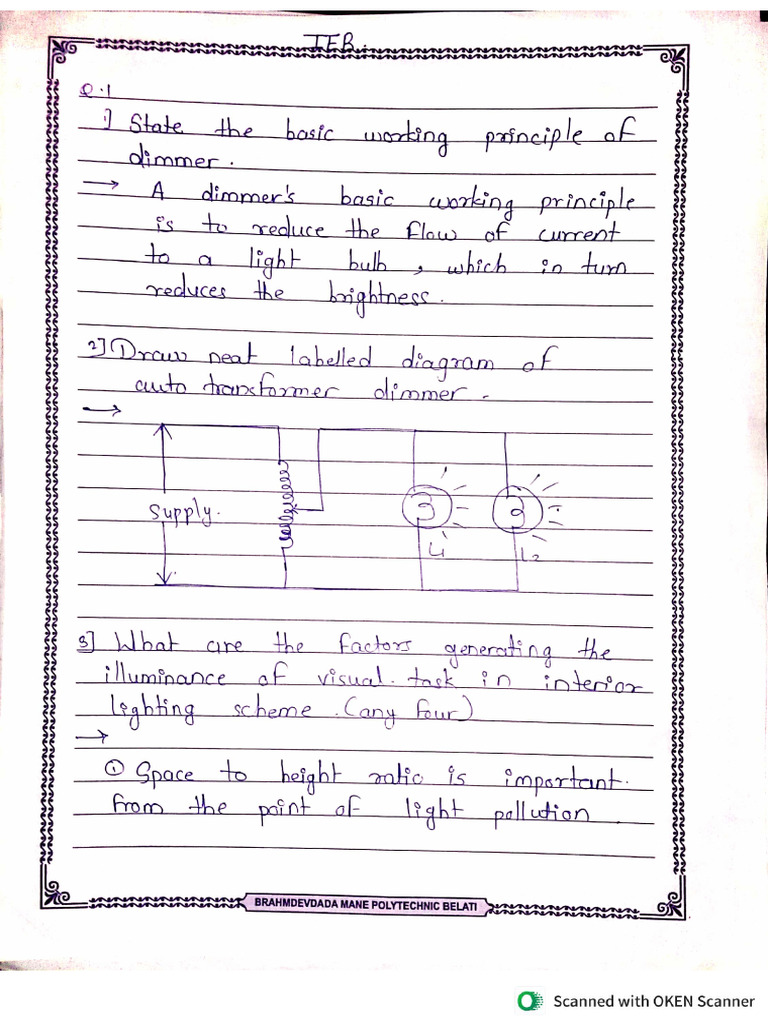 IEB.
Q.1
1) State the basic working principle of
dimmer.
→ A dimmer's basic working principle
is to reduce the flow of current
to a light bulb, which in turn
reduces the brightness.
2] Draw neat labelled diagram of
auto transformer dimmer.
→
Supply.
L1
L2
3] What are the factors generating the
illuminance of visual task in interior
lighting scheme. (any four)
→
① Space to height ratio is important
from the point of light pollution.
BRAHMDEVDADA MANE POLYTECHNIC BELATI
Scanned with OKEN Scanner